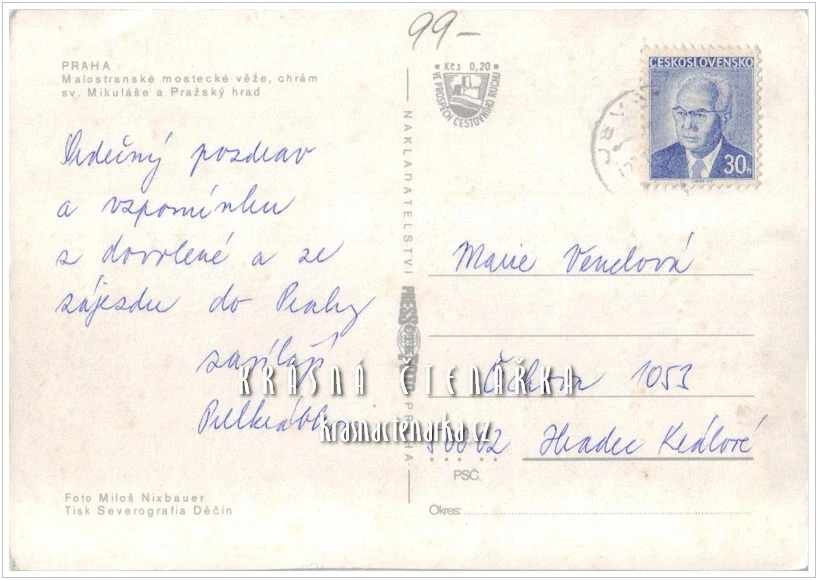 99-
PRAHA
Malostranské mostecké věže, chrám
sv. Mikuláše a Pražský hrad
Srdečný pozdrav
a vzpomínku
z dovolené a ze
zájezdu do Prahy
zasílají
Foto Miloš Nixbauer
Tisk Severografia Děčín
NAKLADATELSTVÍ PRESSFOTO PRAHA
Kčs 0,20
VE PROSPĚCH CESTOVNÍHO RUCHU
ČESKOSLOVENSKO
30h
Marie Venclová
1053
50002 Hradec Králové
PSČ
Okres:
KRÁSNÁ ČTENÁŘKA
krasnactenarka.cz